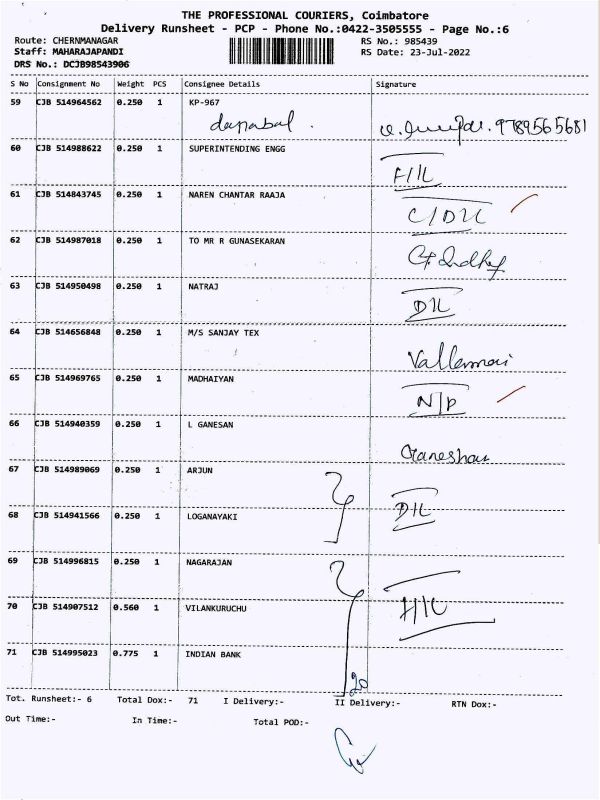 THE PROFESSIONAL COURIERS, Coimbatore
Delivery Runsheet - PCP - Phone No.:0422-3505555 - Page No.:6
Route: CHERNMANAGAR RS No.: 985439
Staff: MAHARAJAPANDI RS Date: 23-Jul-2022
DRS No.: DCJB98543906
S No Consignment No Weight PCS Consignee Details Signature
59 CJB 514964562 0.250 1 KP-967
danabal. 9789565681
60 CJB 514988622 0.250 1 SUPERINTENDING ENGG
61 CJB 514843745 0.250 1 NAREN CHANTAR RAAJA
62 CJB 514987018 0.250 1 TO MR R GUNASEKARAN
63 CJB 514950498 0.250 1 NATRAJ
D/L
64 CJB 514656848 0.250 1 M/S SANJAY TEX
65 CJB 514969765 0.250 1 MADHAIYAN
N/P
66 CJB 514940359 0.250 1 L GANESAN
67 CJB 514989069 0.250 1 ARJUN
D/L
68 CJB 514941566 0.250 1 LOGANAYAKI
69 CJB 514996815 0.250 1 NAGARAJAN
70 CJB 514907512 0.560 1 VILANKURUCHU
71 CJB 514995023 0.775 1 INDIAN BANK
20
Tot. Runsheet:- 6 Total Dox:- 71 I Delivery:- II Delivery:- RTN Dox:-
Out Time:- In Time:- Total POD:-